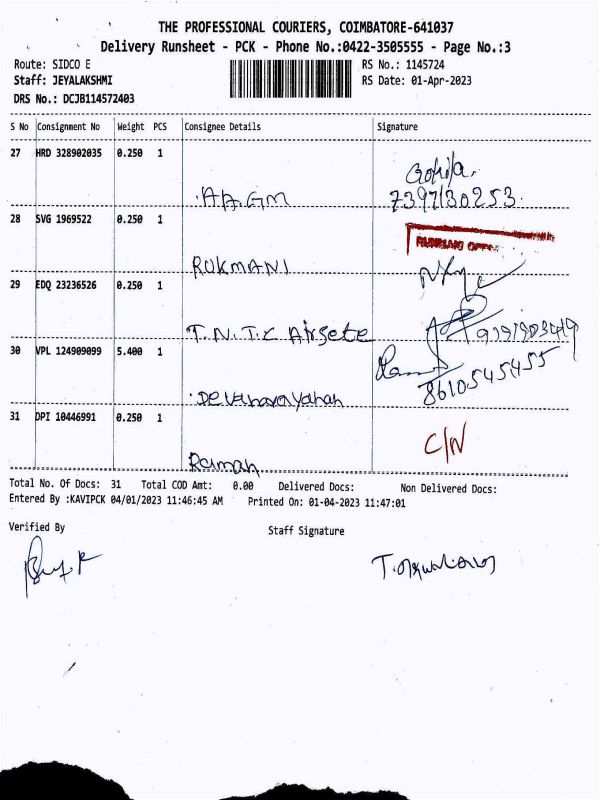 THE PROFESSIONAL COURIERS, COIMBATORE-641037
Delivery Runsheet - PCK - Phone No.:0422-3505555 - Page No.:3
Route: SIDCO E RS No.: 1145724
Staff: JEYALAKSHMI RS Date: 01-Apr-2023
DRS No.: DCJB114572403
S No Consignment No Weight PCS Consignee Details Signature
27 HRD 328902035 0.250 1
7397130253
28 SVG 1969522 0.250 1
RUKMANI
29 EDQ 23236526 0.250 1
T.N.T.C
30 VPL 124909099 5.400 1
8610545455
31 DPI 10446991 0.250 1
C/N
Raman
Total No. Of Docs: 31 Total COD Amt: 0.00 Delivered Docs: Non Delivered Docs:
Entered By :KAVIPCK 04/01/2023 11:46:45 AM Printed On: 01-04-2023 11:47:01
Verified By Staff Signature